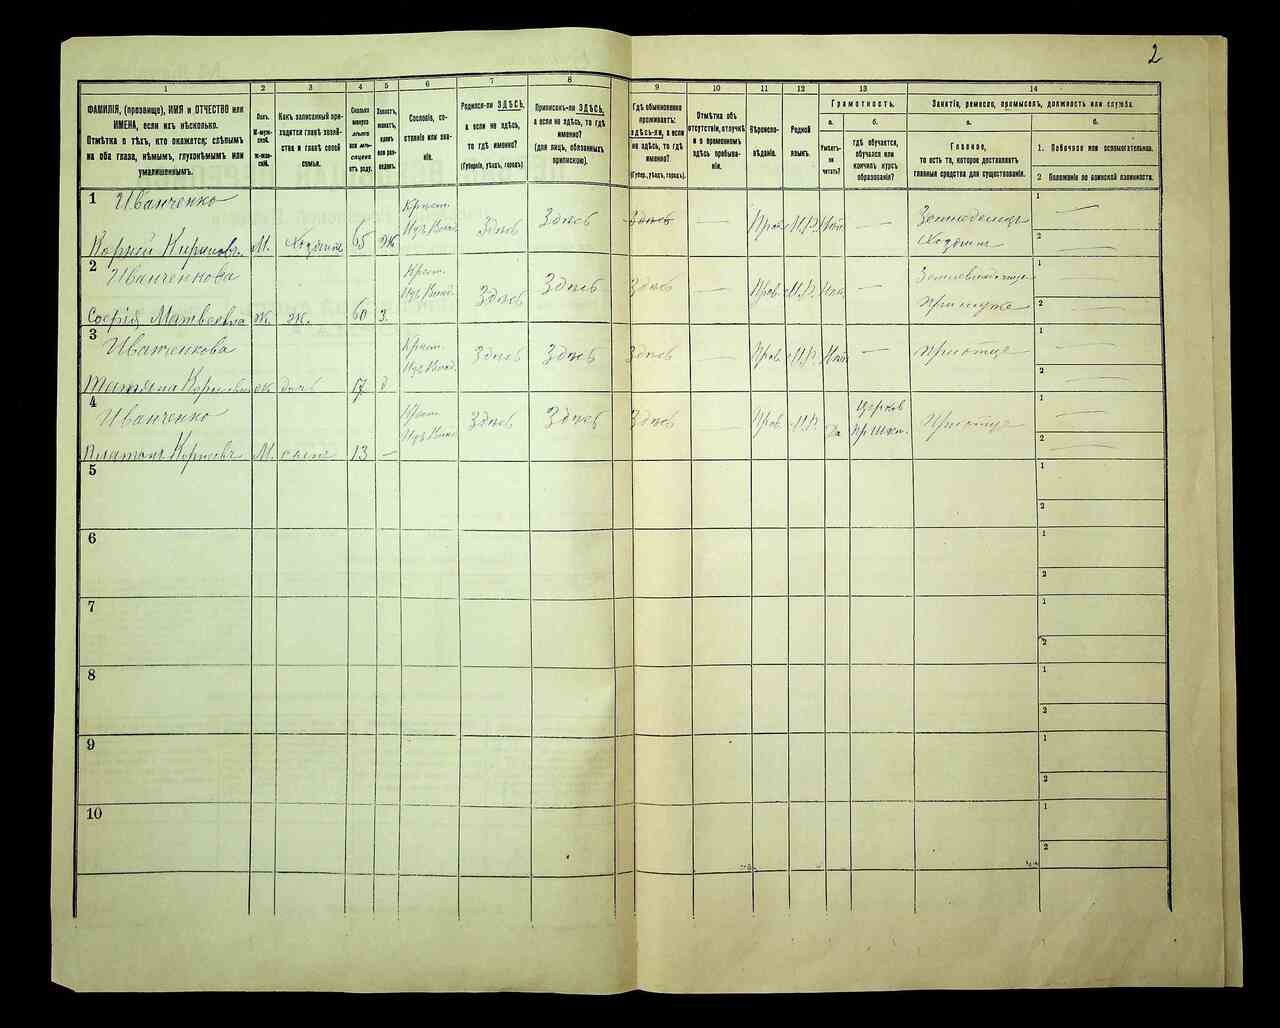 2
1
2
3
4
5
6
7
8
9
10
11
12
13
14
ФАМИЛІЯ, (прозвище), ИМЯ и ОТЧЕСТВО или
ИМЕНА, если ихъ нѣсколько.
Отмѣтка о тѣхъ, кто окажется: слѣпымъ
на оба глаза, нѣмымъ, глухонѣмымъ или
умалишеннымъ.
Полъ.
М-муж-
ской.
Ж-жен-
скій.
Какъ записанный при-
ходится главѣ хозяй-
ства и главѣ своей
семьи.
Сколько
минуло
лѣтъ
или мѣ-
сяцевъ
отъ роду.
Холостъ,
женатъ,
вдовъ
или раз-
веденъ.
Сословіе, со-
стояніе или зва-
ніе.
Родился-ли ЗДѢСЬ,
а если не здѣсь,
то гдѣ именно?
(Губернія, уѣздъ, городъ).
Приписанъ-ли ЗДѢСЬ,
а если не здѣсь, то гдѣ
именно?
(для лицъ, обязанныхъ
припискою).
Гдѣ обыкновенно
проживаетъ:
здѣсь-ли, а если
не здѣсь, то гдѣ
именно?
(Губер., уѣздъ, городъ).
Отмѣтка объ
отсутствіи, отлучкѣ
и о временномъ
здѣсь пребыва-
ніи.
Вѣроиспо-
вѣданіе.
Родной
языкъ.
Грамотность.
а.
Умѣетъ-
ли
читать?
б.
гдѣ обучается,
обучался или
кончилъ курсъ
образованія?
Занятіе, ремесло, промыселъ, должность или служба.
а.
Главное,
то есть то, которое доставляетъ
главныя средства для существованія.
б.
1. Побочное или вспомогательное.
2 Положеніе по воинской повинности.
1 Иванченко
Корней Кириловъ М. Хозяинъ 65 Ж Крест. Здѣсь Здѣсь Здѣсь — Прав. М.Р. Нѣтъ — Земледелецъ
Хозяинъ
1 —
2 —
2 Иванченкова
Софія Матвеевна Ж. Ж. 60 З. Крест. Здѣсь Здѣсь Здѣсь — Прав. М.Р. Нѣтъ —
При мужѣ
1 —
2 —
3 Иванченкова
Татьяна Ж дочь 17 д Крест. Здѣсь Здѣсь Здѣсь — Прав. М.Р. Нѣтъ — При отцѣ
1 —
2 —
4 Иванченко
Платонъ М. сынъ 13 — Крест. Здѣсь Здѣсь Здѣсь — Прав. М.Р. Да Церков При отцѣ
1 —
2 —
5
1
2
6
1
2
7
1
2
8
1
2
9
1
2
10
1
2